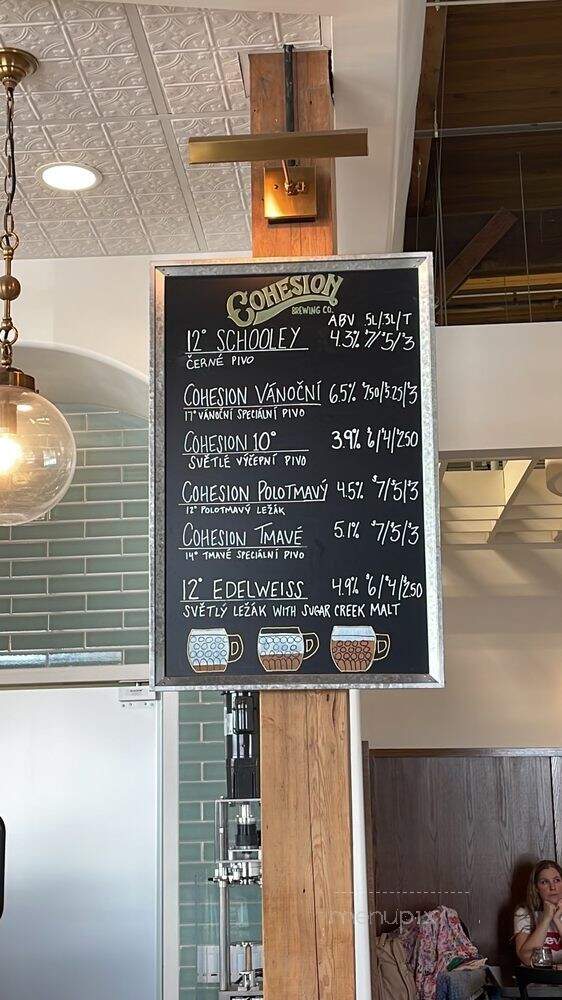 COHESION
BREWING CO.
ABV .5L/.3L/T
12° SCHOOLEY 4.3% $7/$5/$3
ČERNÉ PIVO
COHESION VÁNOČNÍ 6.5% $7.50/$5.25/$3
17° VÁNOČNÍ SPECIÁLNÍ PIVO
COHESION 10° 3.9% $6/$4/$2.50
SVĚTLÉ VÝČEPNÍ PIVO
COHESION POLOTMAVÝ 4.5% $7/$5/$3
12° POLOTMAVÝ LEŽÁK
COHESION TMAVÉ 5.1% $7/$5/$3
14° TMAVÉ SPECIÁLNÍ PIVO
12° EDELWEISS 4.9% $6/$4/$2.50
SVĚTLÝ LEŽÁK WITH SUGAR CREEK MALT
menupix